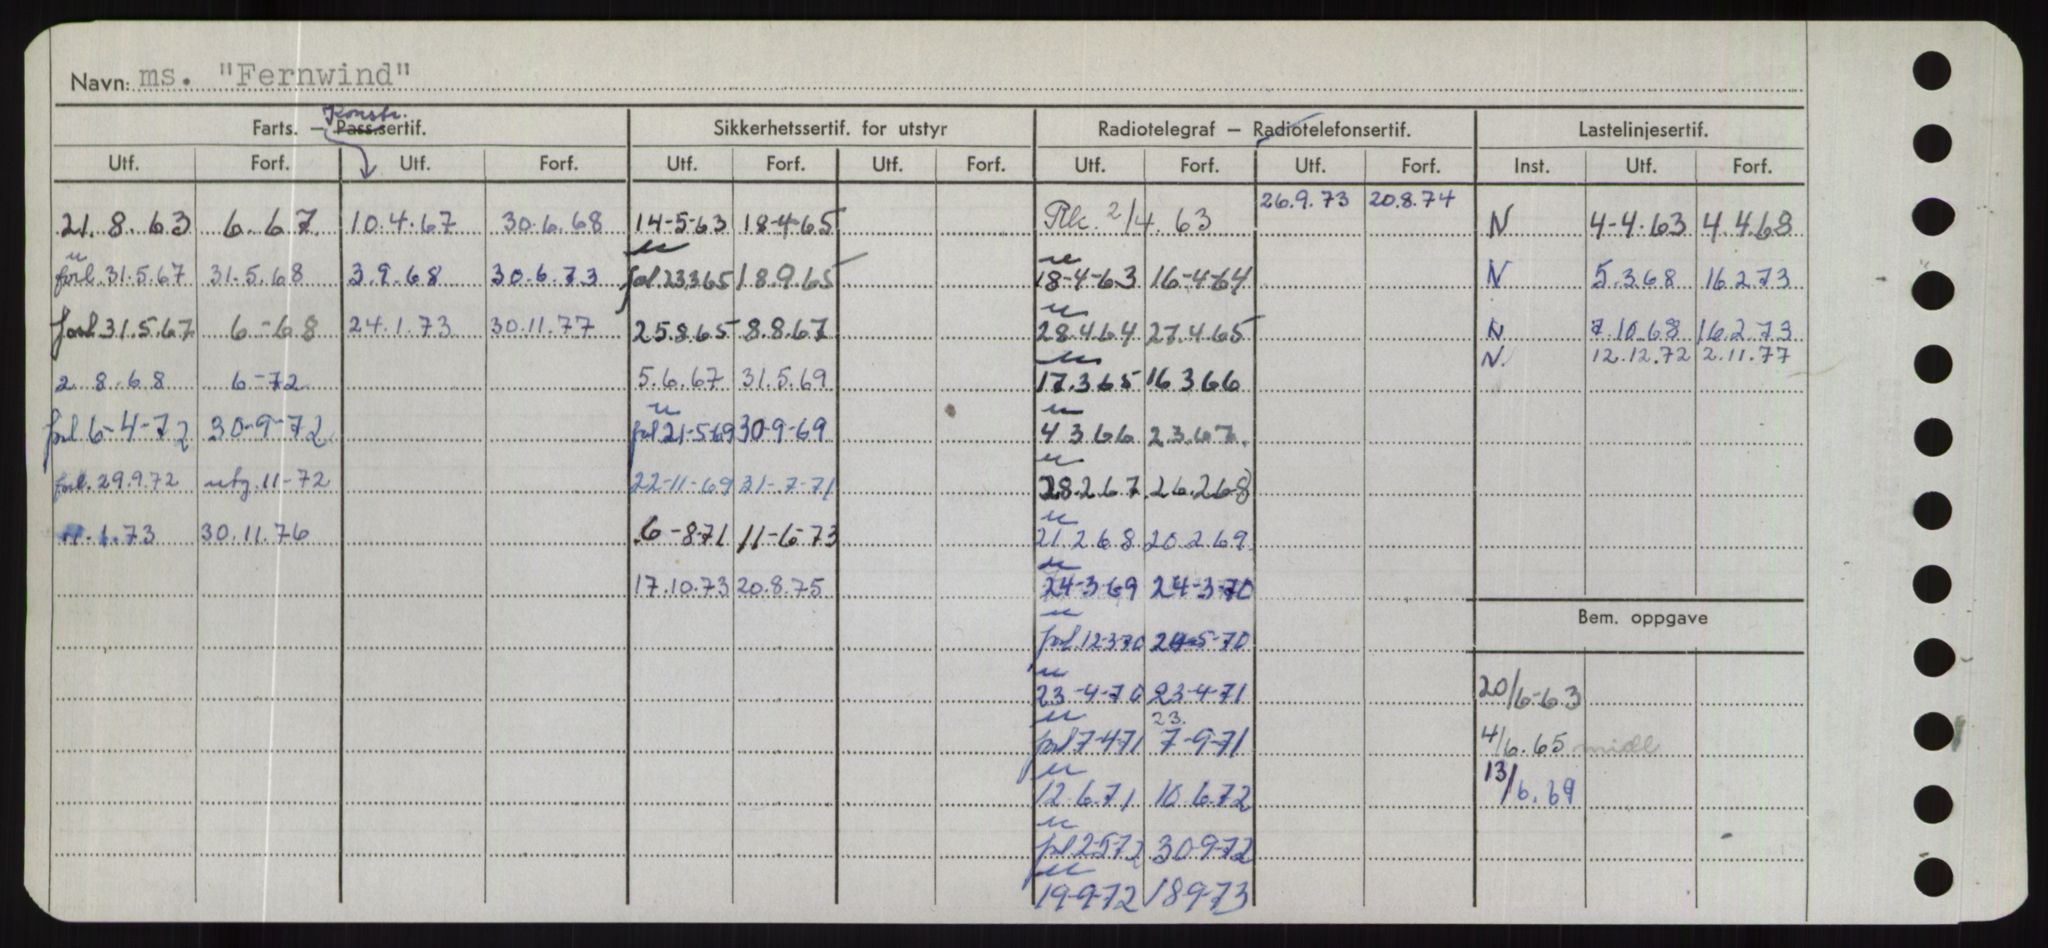 Navn: ms. "Fernwind"
Konstr.
Farts. – Pass.sertif. Sikkerhetssertif. for utstyr Radiotelegraf – Radiotelefonsertif. Lastelinjesertif.
Utf. Forf. Utf. Forf. Utf. Forf. Utf. Forf. Utf. Forf. Utf. Forf. Inst. Utf. Forf.
26.9.73 20.8.74
21.8.63 6.67 10.4.67 30.6.68 14-5-63 18-4-65 2/4.63 N 4-4.63 4.4.68
forl.31.5.67 31.5.68 3.9.68 30.6.73 forl.23.3.65 18.9.65 18-4-63 16-4-64 N 5.3.68 16.2.73
forl.31.5.67 6-68 24.1.73 30.11.77 25.8.65 8.8.67 28.4.64 27.4.65 N 7.10.68 16.2.73
N. 12.12.72 2.11.77
2.8.68 6-72 5.6.67 31.5.69 17.3.65 16.3.66
forl 6-4-72 30-9-72 forl 21-5-69 30-9-69 4.3.66 2.3.67.
forl.29.9.72 utg.11-72 22-11-69 31-7-71 28.2.67 26.2.68
1.73 30.11.76 6-8-71 11-6-73 21.2.68 20.2.69
17.10.73 20.8.75 24-3-69 24-3-70
Bem. oppgave
forl 12-3-70 24-5-70
23-4-70 23-4-71 20/6-63
23.
forl 7-4-71 7-9-71 4/6.65 midl
12.6.71 10.6.72 13/6.69
forl 2-5-72 30-9-72
19-9-72 18-9-73